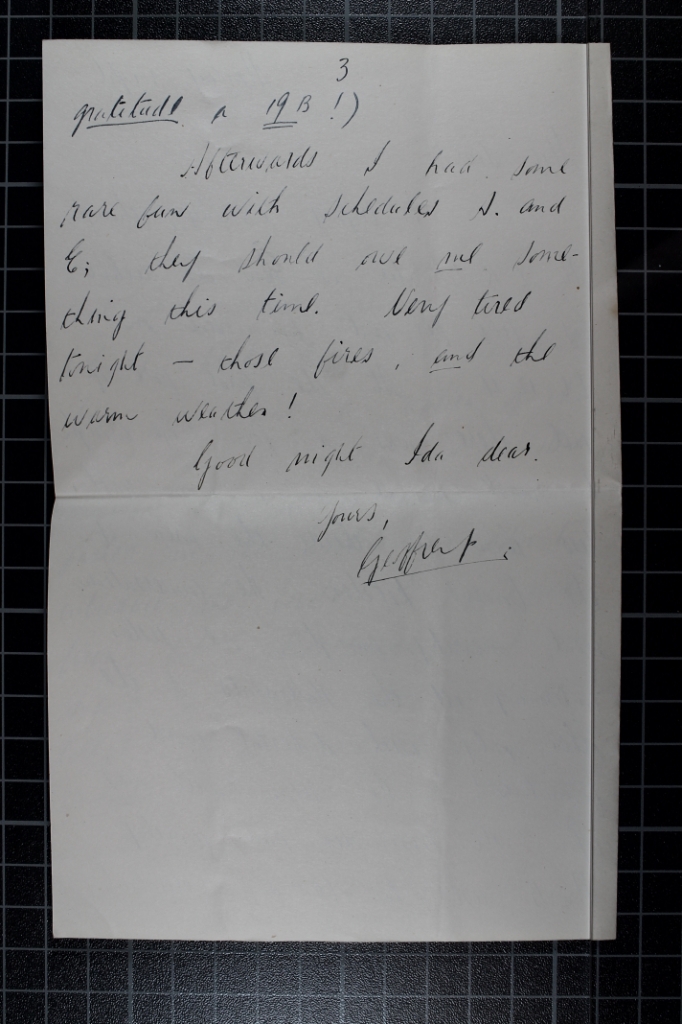 3
gratitude a 19B!)
Afterwards I had some
rare fun with schedules D. and
E; they should owe me some-
thing this time. Very tired
tonight – those fires, and the
warm weather!
Good night Ida dear.
Yours,
Geoffrey.